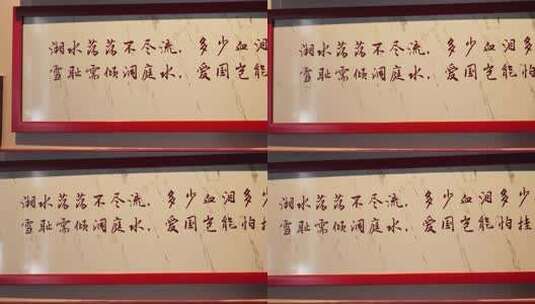 湘水荡荡不尽流，多少血泪
雪耻需倾洞庭水，爱国岂能
湘水荡荡不尽流，多少血泪
雪耻需倾洞庭水，爱国岂能怕
湘水荡荡不尽流，多少血泪多少
雪耻需倾洞庭水，爱国岂能怕挂
湘水荡荡不尽流，多少血泪多少
雪耻需倾洞庭水，爱国岂能怕挂